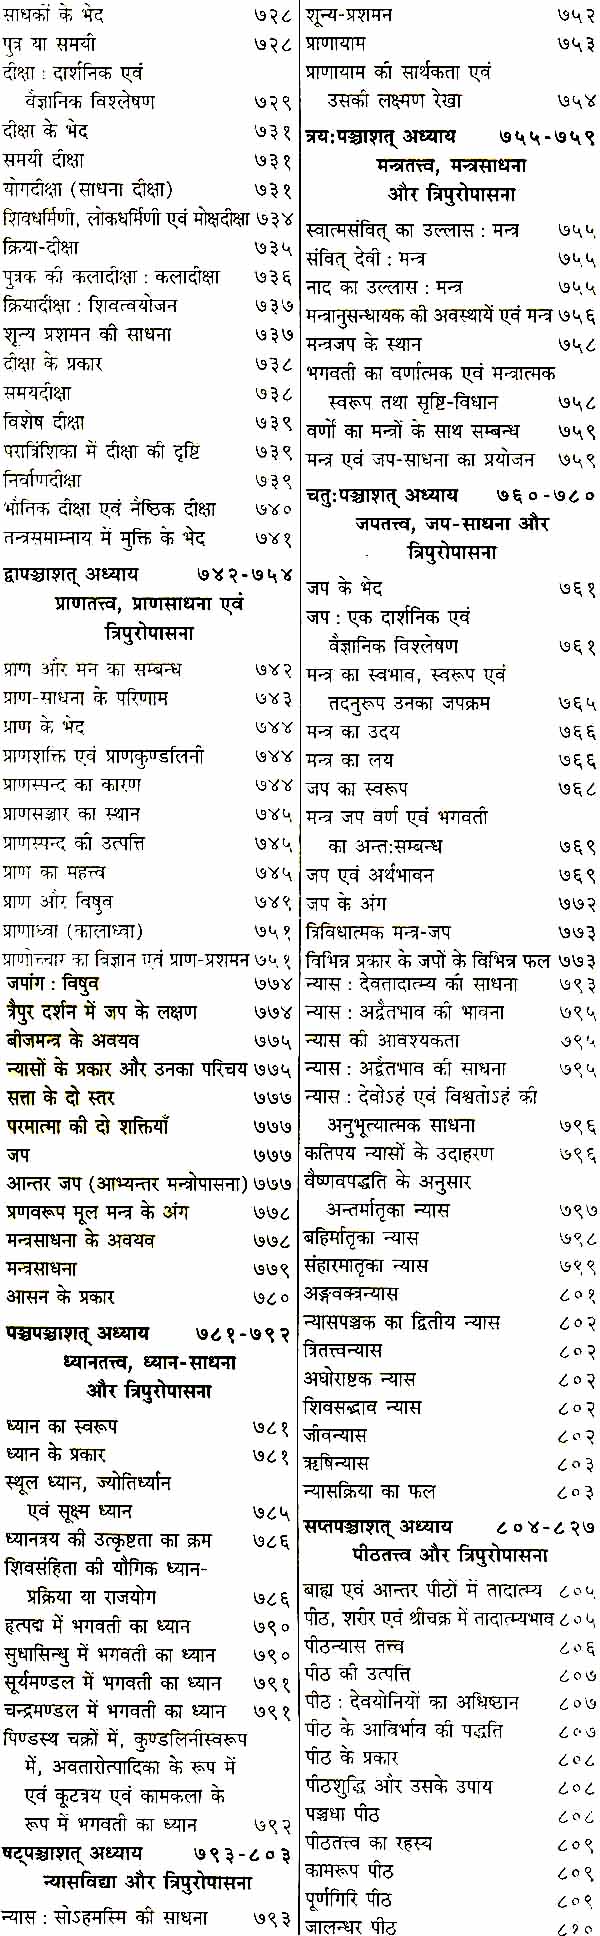 साधकों के भेद ७२८
पुत्र या समयी ७२८
दीक्षा : दार्शनिक एवं
वैज्ञानिक विश्लेषण ७२९
दीक्षा के भेद ७३१
समयी दीक्षा ७३१
योगदीक्षा (साधना दीक्षा) ७३१
शिवधर्मिणी, लोकधर्मिणी एवं मोक्षदीक्षा ७३४
क्रिया-दीक्षा ७३५
पुत्रक की कलादीक्षा : कलादीक्षा ७३६
क्रियादीक्षा : शिवत्वयोजन ७३७
शून्य प्रशमन की साधना ७३७
दीक्षा के प्रकार ७३८
समयदीक्षा ७३८
विशेष दीक्षा ७३९
परात्रिंशिका में दीक्षा की दृष्टि ७३९
निर्वाणदीक्षा ७३९
भौतिक दीक्षा एवं नैष्ठिक दीक्षा ७४०
तन्त्रसमाम्नाय में मुक्ति के भेद ७४१
द्वापञ्चाशत् अध्याय ७४२-७५४
प्राणतत्त्व, प्राणसाधना एवं
त्रिपुरोपासना
प्राण और मन का सम्बन्ध ७४२
प्राण-साधना के परिणाम ७४३
प्राण के भेद ७४४
प्राणशक्ति एवं प्राणकुण्डलिनी ७४४
प्राणस्पन्द का कारण ७४४
प्राणसञ्चार का स्थान ७४५
प्राणस्पन्द की उत्पत्ति ७४५
प्राण का महत्त्व ७४५
प्राण और विषुव ७४९
प्राणाध्वा (कालाध्वा) ७५१
प्राणोच्चार का विज्ञान एवं प्राण-प्रशमन ७५१
शून्य-प्रशमन ७५२
प्राणायाम ७५३
प्राणायाम की सार्थकता एवं
उसकी लक्ष्मण रेखा ७५४
त्रय:पञ्चाशत् अध्याय ७५५-७५९
मन्त्रतत्त्व, मन्त्रसाधना
और त्रिपुरोपासना
स्वात्मसंवित् का उल्लास : मन्त्र ७५५
संवित् देवी : मन्त्र ७५५
नाद का उल्लास : मन्त्र ७५५
मन्त्रानुसन्धायक की अवस्थायें एवं मन्त्र ७५६
मन्त्रजप के स्थान ७५८
भगवती का वर्णात्मक एवं मन्त्रात्मक
स्वरूप तथा सृष्टि-विधान ७५८
वर्णों का मन्त्रों के साथ सम्बन्ध ७५९
मन्त्र एवं जप-साधना का प्रयोजन ७५९
चतु:पञ्चाशत् अध्याय ७६०-७८०
जपतत्त्व, जप-साधना और
त्रिपुरोपासना
जप के भेद ७६१
जप : एक दार्शनिक एवं
वैज्ञानिक विश्लेषण ७६१
मन्त्र का स्वभाव, स्वरूप एवं
तदनुरूप उनका जपक्रम ७६५
मन्त्र का उदय ७६६
मन्त्र का लय ७६६
जप का स्वरूप ७६८
मन्त्र जप वर्ण एवं भगवती
का अन्त:सम्बन्ध ७६९
जप एवं अर्थभावन ७६९
जप के अंग ७७२
त्रिविधात्मक मन्त्र-जप ७७३
विभिन्न प्रकार के जपों के विभिन्न फल ७७३
जपांग : विषुव ७७४
त्रैपुर दर्शन में जप के लक्षण ७७४
बीजमन्त्र के अवयव ७७५
न्यासों के प्रकार और उनका परिचय ७७५
सत्ता के दो स्तर ७७७
परमात्मा की दो शक्तियाँ ७७७
जप ७७७
आन्तर जप (आभ्यन्तर मन्त्रोपासना) ७७७
प्रणवरूप मूल मन्त्र के अंग ७७८
मन्त्रसाधना के अवयव ७७८
मन्त्रसाधना ७७९
आसन के प्रकार ७८०
पञ्चपञ्चाशत् अध्याय ७८१-७९२
ध्यानतत्त्व, ध्यान-साधना
और त्रिपुरोपासना
ध्यान का स्वरूप ७८१
ध्यान के प्रकार ७८१
स्थूल ध्यान, ज्योतिर्ध्यान
एवं सूक्ष्म ध्यान ७८५
ध्यानत्रय की उत्कृष्टता का क्रम ७८६
शिवसंहिता की यौगिक ध्यान-
प्रक्रिया या राजयोग ७८६
हृत्पद्म में भगवती का ध्यान ७९०
सुधासिन्धु में भगवती का ध्यान ७९०
सूर्यमण्डल में भगवती का ध्यान ७९१
चन्द्रमण्डल में भगवती का ध्यान ७९१
पिण्डस्थ चक्रों में, कुण्डलिनीस्वरूप
में, अवतारोत्पादिका के रूप में
एवं कूटत्रय एवं कामकला के
रूप में भगवती का ध्यान ७९२
षट्पञ्चाशत् अध्याय ७९३-८०३
न्यासविद्या और त्रिपुरोपासना
न्यास : सोऽहमस्मि की साधना ७९३
न्यास : देवतादात्म्य की साधना ७९३
न्यास : अद्वैतभाव की भावना ७९५
न्यास की आवश्यकता ७९५
न्यास : अद्वैतभाव की साधना ७९५
न्यास : देवोऽहं एवं विश्वतोऽहं की
अनुभूत्यात्मक साधना ७९६
कतिपय न्यासों के उदाहरण ७९६
वैष्णवपद्धति के अनुसार
अन्तर्मातृका न्यास ७९७
बहिर्मातृका न्यास ७९८
संहारमातृका न्यास ७९९
अङ्गवक्त्रन्यास ८०१
न्यासपञ्चक का द्वितीय न्यास ८०२
त्रितत्त्वन्यास ८०२
अघोराष्टक न्यास ८०२
शिवसद्भाव न्यास ८०२
जीवन्यास ८०२
ऋषिन्यास ८०३
न्यासक्रिया का फल ८०३
सप्तपञ्चाशत् अध्याय ८०४-८२७
पीठतत्त्व और त्रिपुरोपासना
बाह्य एवं आन्तर पीठों में तादात्म्य ८०५
पीठ, शरीर एवं श्रीचक्र में तादात्म्यभाव ८०५
पीठन्यास तत्त्व ८०६
पीठ की उत्पत्ति ८०७
पीठ : देवयोनियों का अधिष्ठान ८०७
पीठ के आविर्भाव की पद्धति ८०७
पीठ के प्रकार ८०८
पीठशुद्धि और उसके उपाय ८०८
पञ्चधा पीठ ८०८
पीठतत्त्व का रहस्य ८०९
कामरूप पीठ ८०९
पूर्णगिरि पीठ ८०९
जालन्धर पीठ ८१०